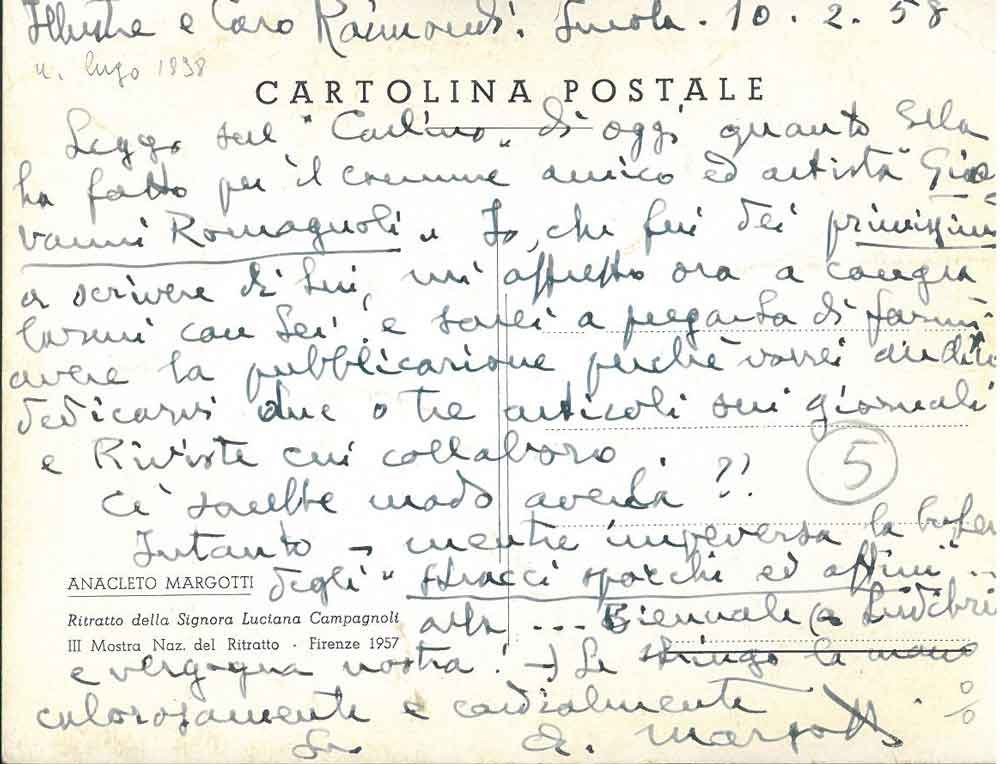 Illustre e Caro Raimondi. Imola. 10. 2. 58
n. lugo 1898
CARTOLINA POSTALE
Leggo sul "Carlino" di oggi quanto Ella
ha fatto per il comune amico ed artista "Gio
vanni Romagnoli". Io, che fui dei primissimi
a scrivere di Lui, mi affretto ora a congra
larmi con Lei e sarei a pregarla di farmi
avere la pubblicazione perchè vorrei
dedicarvi due o tre articoli sui giornali
e Riviste cui collaboro.
Ci sarebbe modo averla??
5
Intanto - mentre imperversa la bufera
degli "stracci sporchi ed affini"...
ANACLETO MARGOTTI
Ritratto della Signora Luciana Campagnoli
III Mostra Naz. del Ritratto · Firenze 1957
alla ... Biennale (a ludibrio
e vergogna nostra! -) Le stringo la mano
calorosamente e cordialmente
Suo A. Margotti